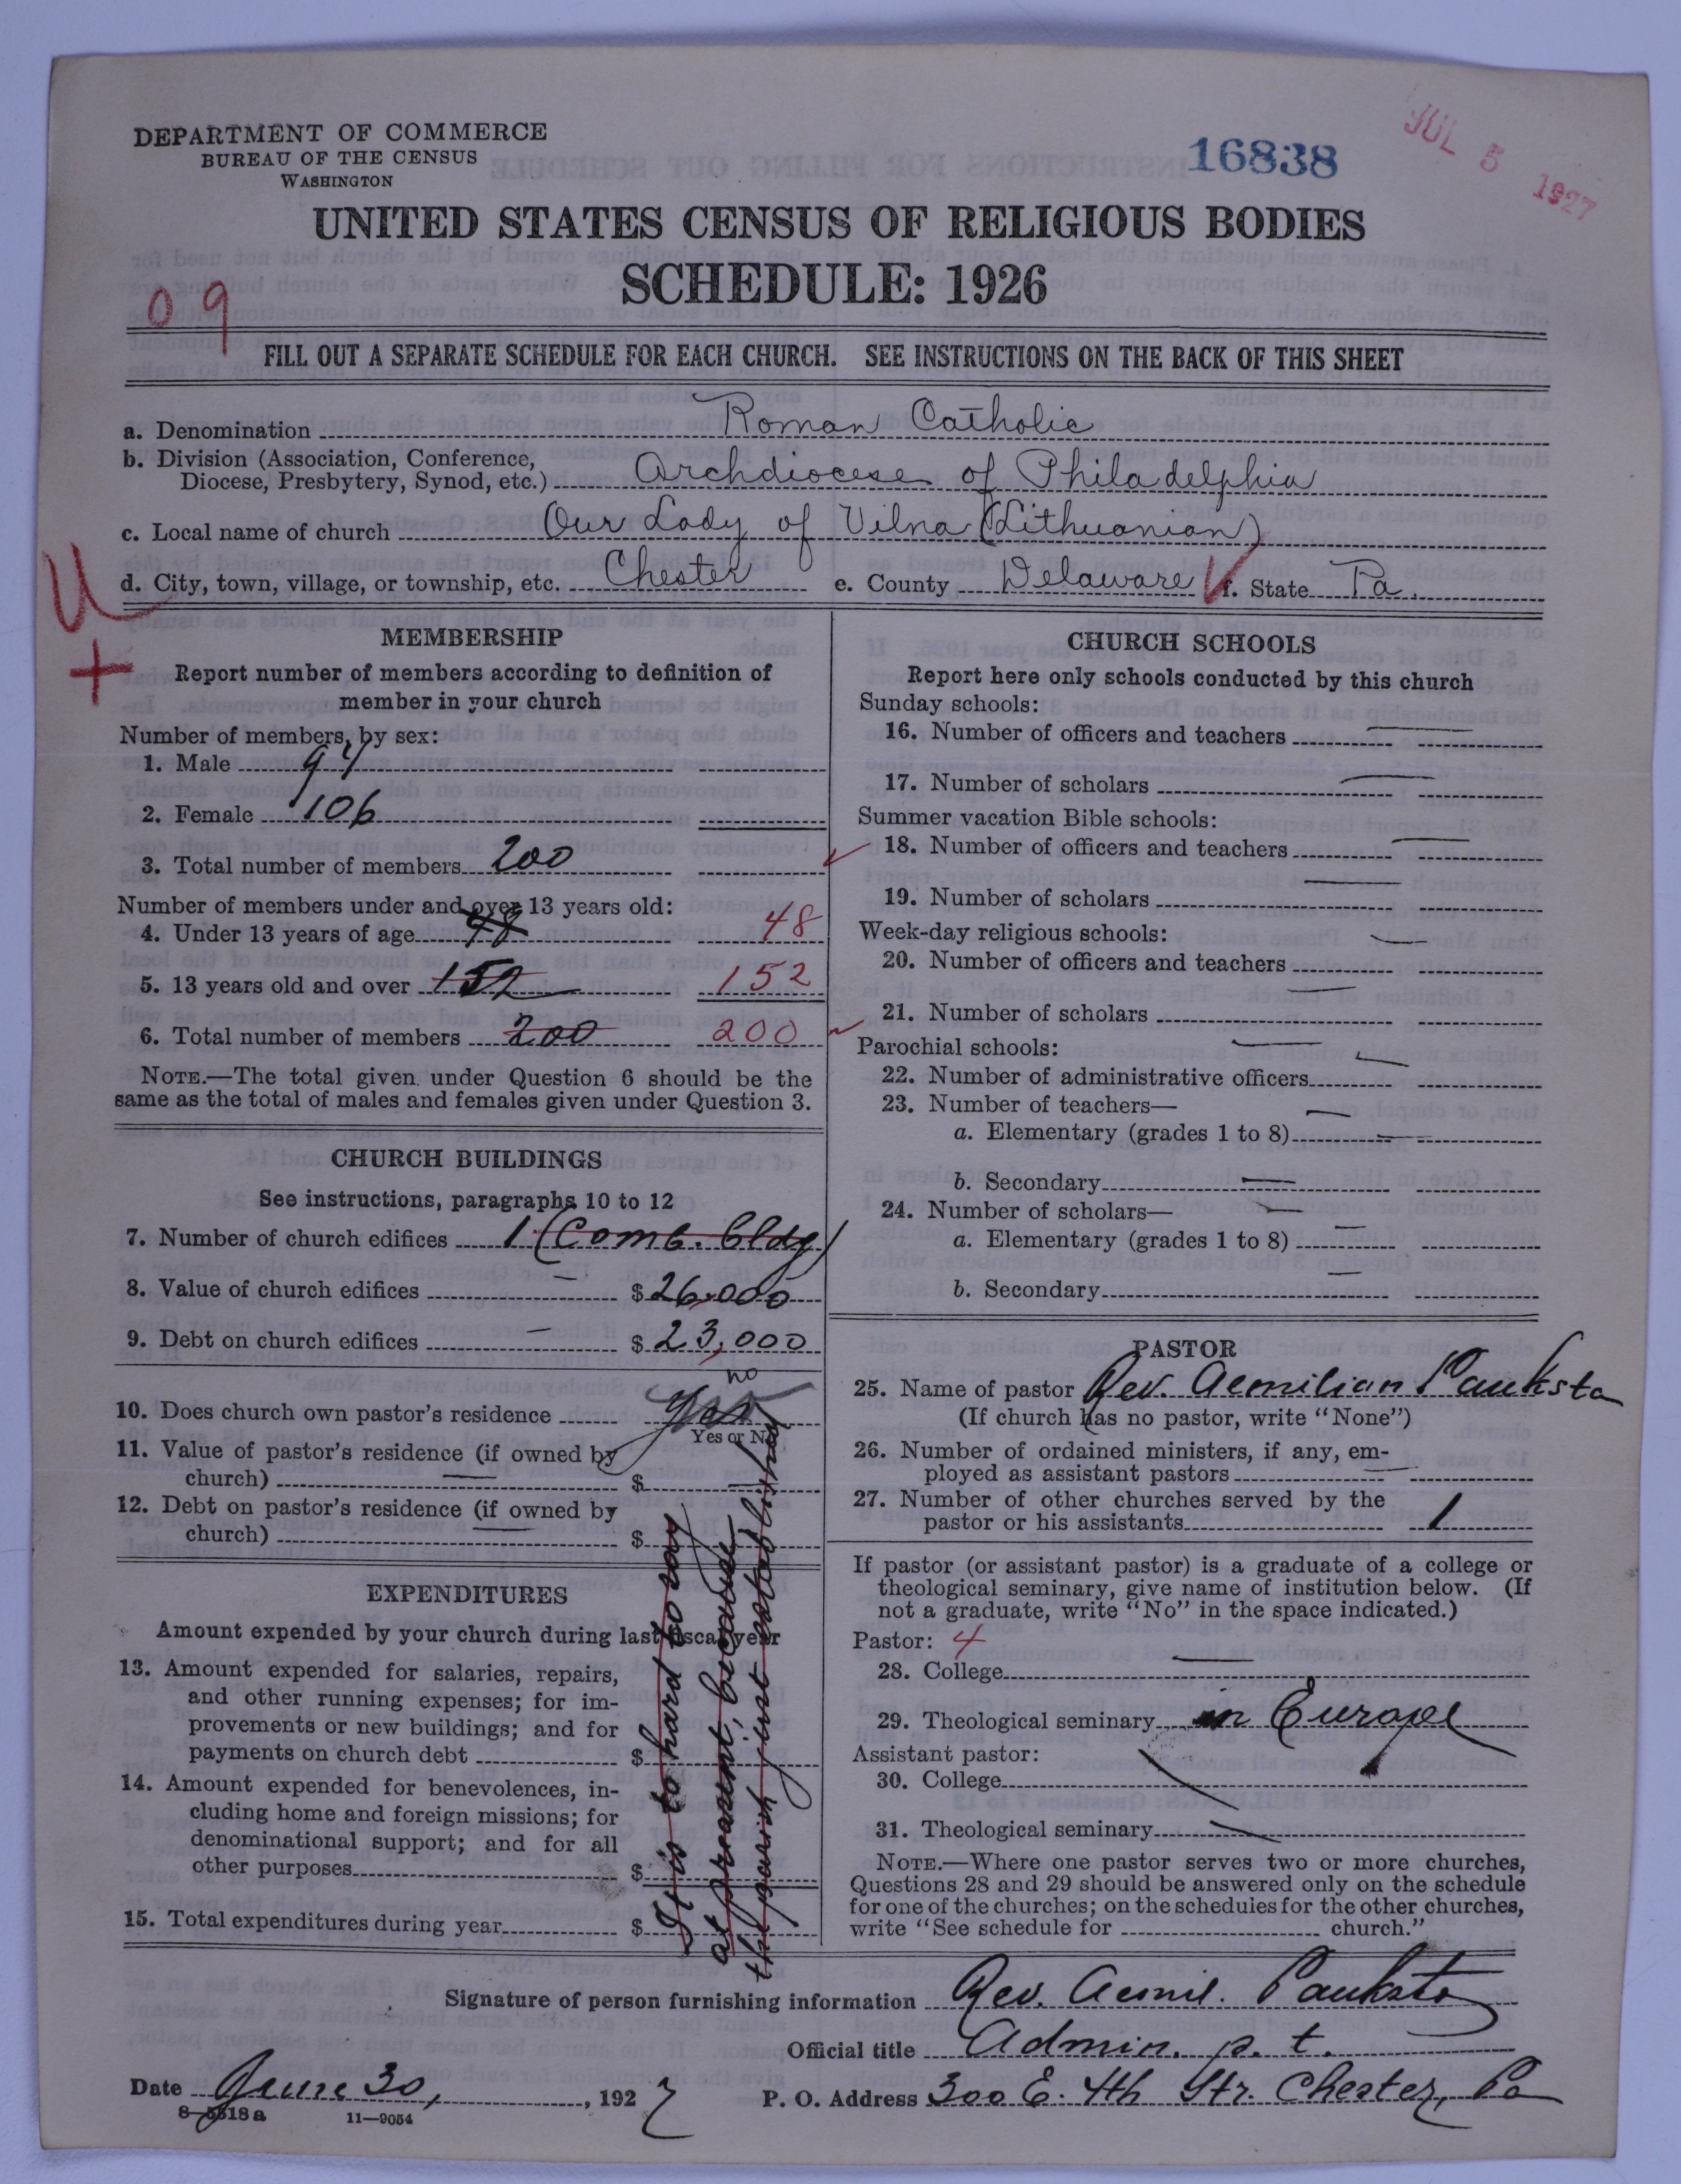 DEPARTMENT OF COMMERCE
BUREAU OF THE CENSUS
WASHINGTON
16838
JUL 5 1927
UNITED STATES CENSUS OF RELIGIOUS BODIES
SCHEDULE: 1926
09
FILL OUT A SEPARATE SCHEDULE FOR EACH CHURCH. SEE INSTRUCTIONS ON THE BACK OF THIS SHEET
a. Denomination Roman Catholic
b. Division (Association, Conference,
Diocese, Presbytery, Synod, etc.) Archdiocese of Philadelphia
c. Local name of church Our Lady of Vilna (Lithuanian)
d. City, town, village, or township, etc. Chester e. County Delaware f. State Pa.
U
+
MEMBERSHIP
Report number of members according to definition of
member in your church
Number of members, by sex:
1. Male 94
2. Female 106
3. Total number of members 200
Number of members under and over 13 years old:
4. Under 13 years of age 48 48
5. 13 years old and over 152 152
6. Total number of members 200 200
NOTE.—The total given under Question 6 should be the
same as the total of males and females given under Question 3.
CHURCH BUILDINGS
See instructions, paragraphs 10 to 12
7. Number of church edifices 1 (Comb. bldg)
8. Value of church edifices — $ 26,000
9. Debt on church edifices — $ 23,000
10. Does church own pastor's residence yes no
Yes or No
11. Value of pastor's residence (if owned by
church) — $ —
12. Debt on pastor's residence (if owned by
church) — $
EXPENDITURES
Amount expended by your church during last fiscal year
13. Amount expended for salaries, repairs,
and other running expenses; for im-
provements or new buildings; and for
payments on church debt $
14. Amount expended for benevolences, in-
cluding home and foreign missions; for
denominational support; and for all
other purposes $
15. Total expenditures during year $
It is to hard to say
at present, because
the parish just established
CHURCH SCHOOLS
Report here only schools conducted by this church
Sunday schools:
16. Number of officers and teachers —
17. Number of scholars —
Summer vacation Bible schools:
18. Number of officers and teachers —
19. Number of scholars —
Week-day religious schools: —
20. Number of officers and teachers
21. Number of scholars —
Parochial schools: —
22. Number of administrative officers —
23. Number of teachers— —
a. Elementary (grades 1 to 8) —
b. Secondary —
24. Number of scholars— —
a. Elementary (grades 1 to 8) —
b. Secondary —
PASTOR
25. Name of pastor Rev. Aemilian Pauksta
(If church has no pastor, write "None")
26. Number of ordained ministers, if any, em-
ployed as assistant pastors —
27. Number of other churches served by the
pastor or his assistants 1
If pastor (or assistant pastor) is a graduate of a college or
theological seminary, give name of institution below. (If
not a graduate, write "No" in the space indicated.)
Pastor: 4
28. College —
29. Theological seminary in Europe
Assistant pastor:
30. College
31. Theological seminary
NOTE.—Where one pastor serves two or more churches,
Questions 28 and 29 should be answered only on the schedule
for one of the churches; on the schedules for the other churches,
write "See schedule for church."
Signature of person furnishing information Rev. Aemil. Pauksta
Official title Admin. p. t.
Date June 30, 1927 P. O. Address 300 E. 4th Str. Chester, Pa
8—5518a 11—9054